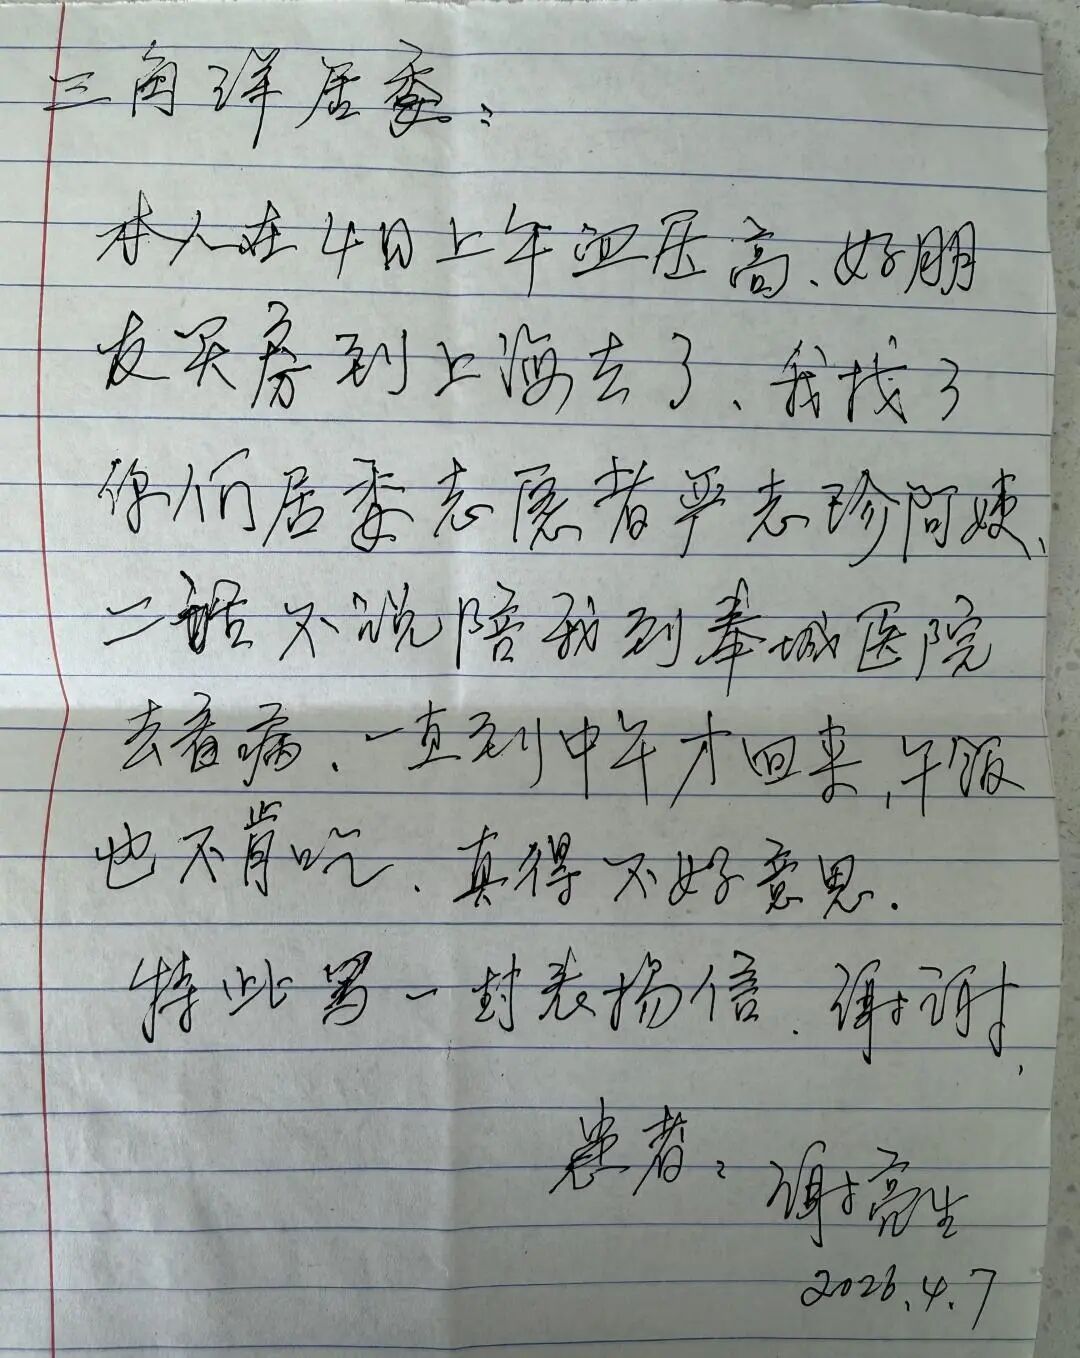 三角洋居委:
本人在4日上午血压高、好朋
友买房到上海去了、我找了
你们居委志愿者严志珍阿姨、
二话不说陪我到奉城医院
去看病、一直到中午才回来,午饭
也不肯吃、真得不好意思.
特此写一封表扬信.谢谢,
患者:谢亮生
2026.4.7